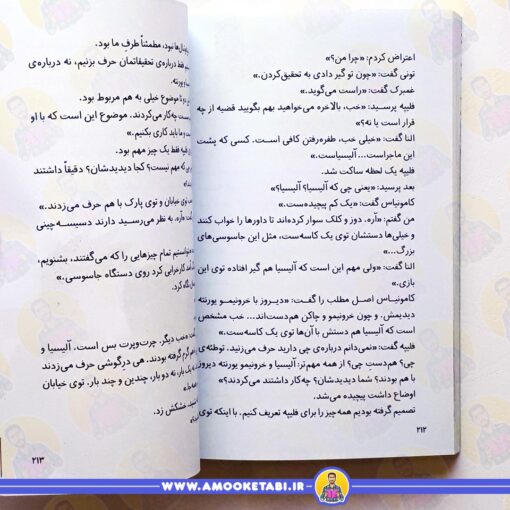 اعتراض کردم: «چرا من؟»
تونی گفت: «چون تو گیر دادی به تحقیق‌کردن.»
غمبرک گفت: «راست می‌گوید.»
فلیپه پرسید: «خب، بالاخره می‌خواهید بهم بگویید قضیه از چه قرار است یا نه؟»
النا گفت: «خیلی خب، طفره‌رفتن کافی است. کسی که پشت این ماجراست... آلیسیاست.»
فلیپه یک لحظه ساکت شد.
بعد پرسید: «یعنی چی که آلیسیا؟ آلیسیا؟»
کامونیاس گفت: «یک کم پیچیده‌ست.»
من گفتم: «آره. دوز و کلک سوار کرده‌اند تا داورها را خواب کنند
و خیلی‌ها دستشان توی یک کاسه‌ست، مثل این جاسوسی‌های بزرگ...»
النا گفت: «ولی مهم این است که آلیسیا هم گیر افتاده توی این بازی.»
کامونیاس اصل مطلب را گفت: «دیروز با خرونیمو یورنته
دیدیمش. و چون خرونیمو و چاکن هم‌دست‌اند... خب مشخص
است که آلیسیا هم دستش با آن‌ها توی یک کاسه‌ست.»
فلیپه گفت: «نمی‌دانم درباره‌ی چی دارید حرف می‌زنید. توطئه‌ی
چی؟ هم‌دستِ چی؟ از همه مهم‌تر: آلیسیا و خرونیمو یورنته دیروز
با هم بودند؟ شما دیدیدشان؟ چه‌کار داشتند می‌کردند؟»
اوضاع داشت پیچیده می‌شد.
تصمیم گرفته بودیم همه‌چیز را برای فلیپه تعریف کنیم. با اینکه توی
۲۱۲
نبود، مطمئناً طرفِ ما بود.
فقط درباره‌ی تحقیقاتمان حرف بزنیم، نه درباره‌ی
یورنته.
تا موضوع خیلی به هم مربوط بود.
چه‌کار می‌کردند. موضوع این است که با او
و ما باید کاری بکنیم.»
فقط یک چیز مهم بود.
مهم نیست؟ کجا دیدیدشان؟ دقیقاً داشتند
توی خیابان و توی پارک با هم حرف می‌زدند.»
«آره. به نظر می‌رسید دارند دسیسه‌چینی
تمام چیزهایی را که می‌گفتند، بشنویم،
کارخرابی کرد روی دستگاه جاسوسی.»
نگاه کرد.
«خب دیگر. چرت‌وپرت بس است. آلیسیا و
گرفته بودند. هی درِگوشی حرف می‌زدند
نه یک بار، نه دو بار، چندین و چند بار. توی خیابان
مشکش زد.
۲۱۳
WWW.AMOOKETABI.IR